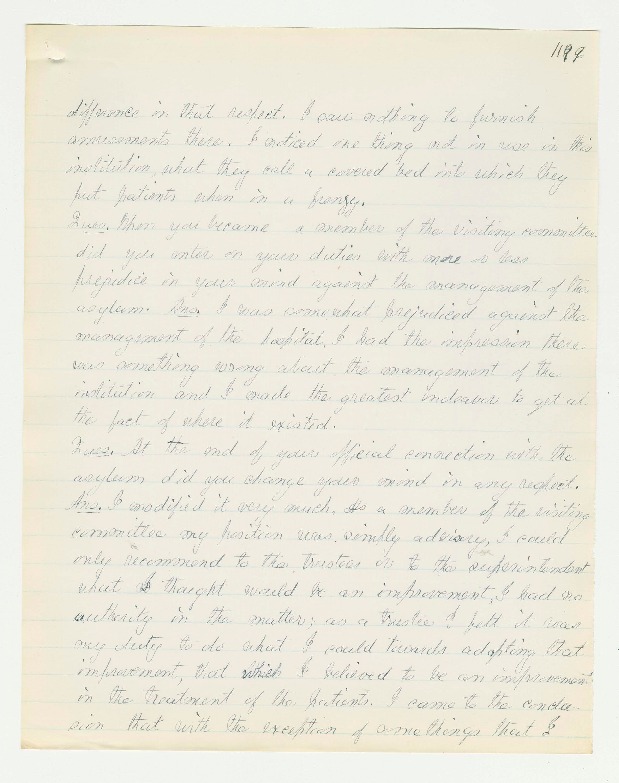 1199
difference in that respect. I saw nothing to furnish
amusements there. I noticed one thing not in use in this
institution, what they call a covered bed into which they
put patients when in a frenzy.
Ques. When you became a member of the visiting committee
did you enter on your duties with more or less
prejudice in your mind against the management of the
asylum. Ans. I was somewhat prejudiced against the
management of the hospital, I had the impression there
was something wrong about the management of the
institution and I made the greatest endeavor to get at
the fact of where it existed.
Ques. At the end of your official connection with the
asylum did you change your mind in any respect.
Ans. I modified it very much. As a member of the visiting
committee my position was simply advisory, I could
only recommend to the trustees or to the superintendent
what I thought would be an improvement, I had no
authority in the matter; as a trustee I felt it was
my duty to do what I could towards adopting that
improvement, that which I believed to be an improvement
in the treatment of the patients. I came to the conclu-
sion that with the exception of some things that I